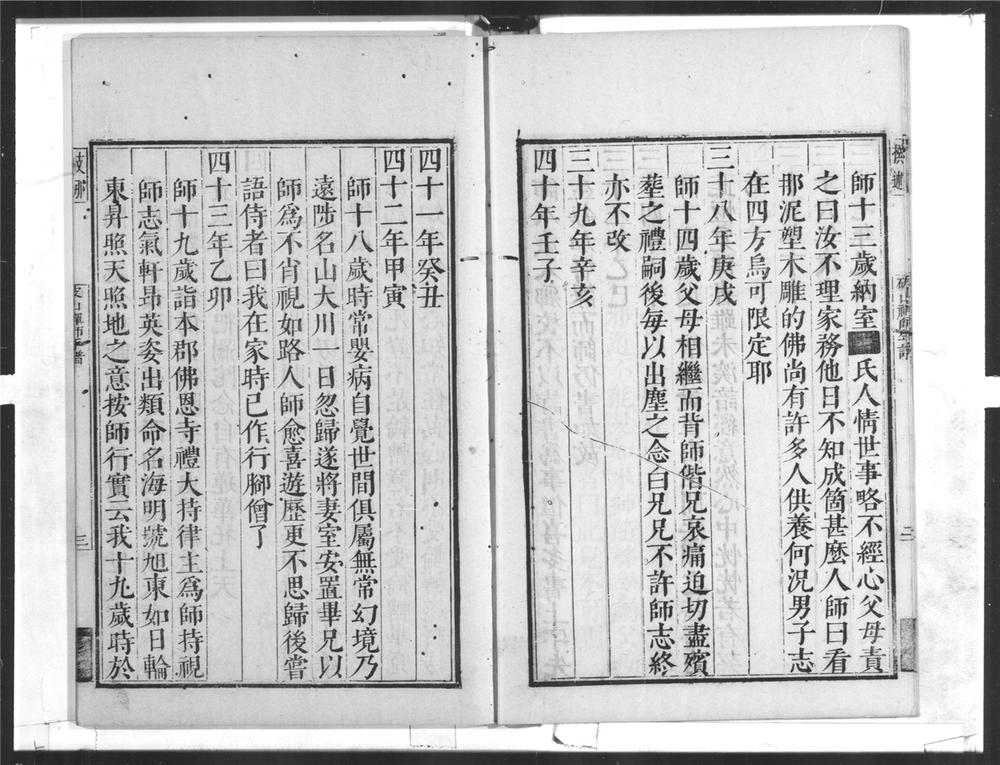 師十三歲納室氏人情世事略不經心父母責
之曰汝不理家務他日不知成箇甚麼人師曰看
那泥塑木雕的佛尚有許多人供養何況男子志
在四方烏可限定耶
三十八年庚戌
師十四歲父母相繼而背師偕兄哀痛迫切盡殯
塟之禮嗣後每以出塵之念白兄兄不許師志終
亦不改
三十九年辛亥
四十年壬子
四十一年癸丑
四十二年甲寅
師十八歲時常嬰病自覺世間俱屬無常幻境乃
遠陟名山大川一日忽歸遂將妻室安置畢兄以
師為不肖視如路人師愈喜遊歷更不思歸後嘗
語侍者曰我在家時已作行腳僧了
四十三年乙卯
師十九歲詣本郡佛恩寺禮大持律主為師持視
師志氣軒昂英姿出類命名海明號旭東如日輪
東昇照天照地之意按師行實云我十九歲時於
三